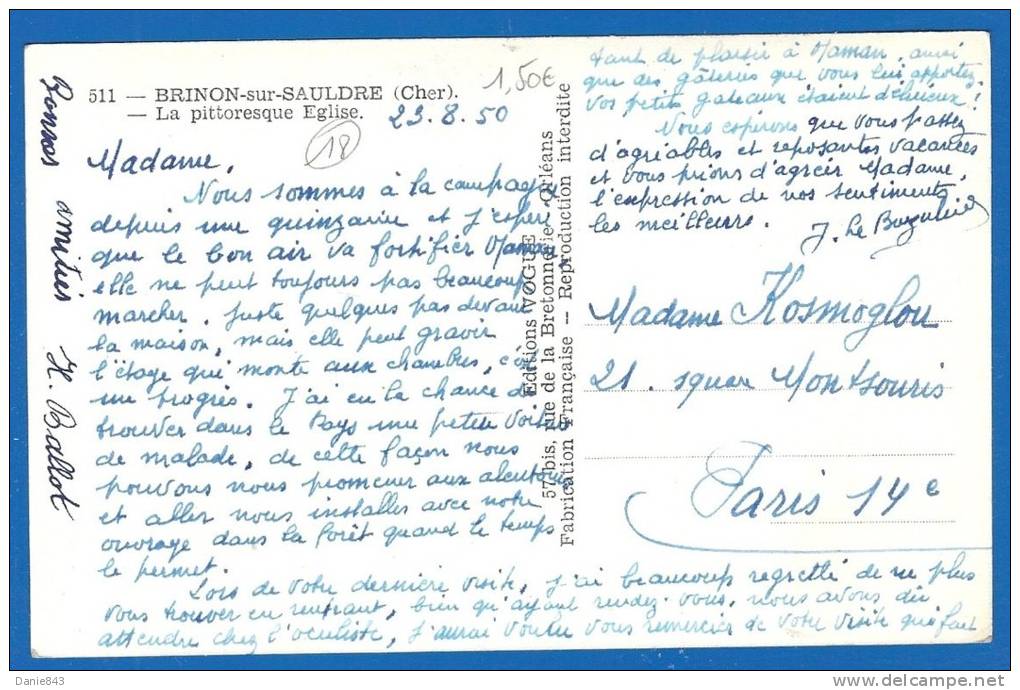 511 — BRINON-sur-SAULDRE (Cher).
— La pittoresque Eglise.
1,50€
23.8.50
18
Madame,
Nous sommes à la campagne
depuis une quinzaine et j'espère
que le bon air va fortifier Maman,
elle ne peut toujours pas beaucoup
marcher. Juste quelques pas devant
la maison, mais elle peut gravir
l'étage qui monte aux chambres, c'est
un progrès. J'ai eu la chance de
trouver dans le Pays une petite voiture
de malade, de cette façon nous
pouvons nous promener aux alentours
et aller nous installer avec notre
ouvrage dans la forêt quand le temps
le permet.
Lors de votre dernière visite, j'ai beaucoup regretté de ne plus
vous trouver en rentrant, bien qu'ayant rendez-vous, nous avons dû
attendre chez l'oculiste, j'aurai voulu vous remercier de votre visite qui fait
tant de plaisir à Maman, ainsi
que des gâteries que vous lui apportez.
Vos petits gateaux étaient délicieux!
Nous espérons que vous passez
d'agréables et reposantes vacances
et vous prions d'agréer Madame,
l'expression de nos sentiments
les meilleurs.
J. Le
Bonnes amitiés H. Ballot
Editions VOGUE
57 bis, rue de la Bretonnerie-Orléans
Fabrication Française -- Reproduction interdite
Madame Kosmoglou
21. square Montsouris
Paris 14e
Danie843
delcampe.net